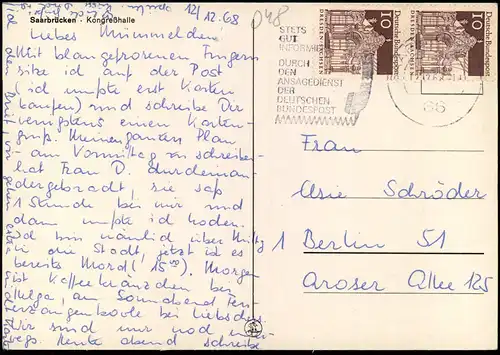 Saarbrücken - Kongreßhalle
12/12.68
Liebes Mümmelchen
Mit blaugefrorenen Fingern
sitze ich auf der Post
(ich mußte erst Karten
kaufen) und schreibe Dir
wenigstens einen Karten-
gruß. Meinen ganzen Plan
- am Vormittag zu schreiben
hat Frau D. durcheinan-
dergebracht, sie saß
1 Stunde bei mir und
dann mußte ich kochen.
Ich bin nämlich über Mittag
in die Stadt, jetzt ist es
bereits (15 50). Morgen
ist Kaffeekränzchen bei
Helga, am Sonnabend
bei
Wir sind nur noch unter-
wegs. Heute abend schreibe
048
STETS
GUT
INFORMIERT
DURCH
DEN
ANSAGEDIENST
DER
DEUTSCHEN
BUNDESPOST
66
10 Deutsche Bundespost
DRESDEN/SACHSEN
10 Deutsche Bundespost
DRESDEN/SACHSEN
Frau
Schröder
1 Berlin 51
Aroser Allee 125